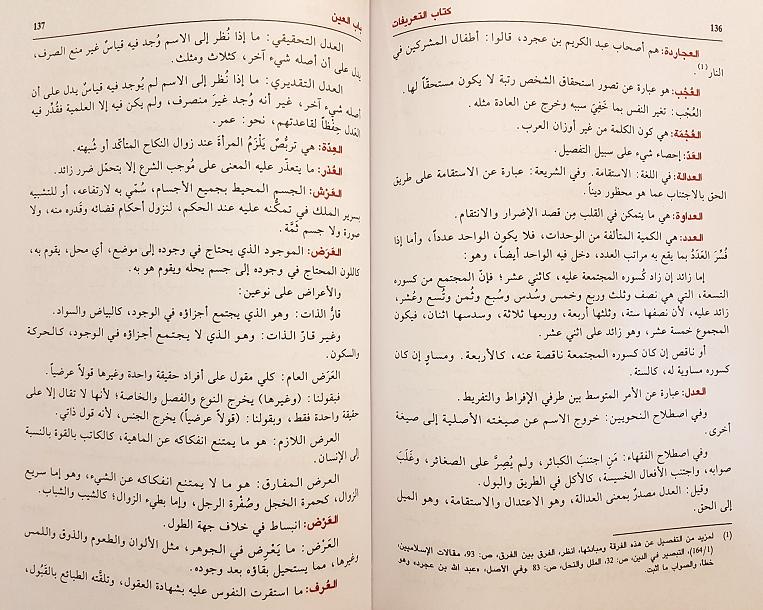 كتاب التعريفات
136
العجاردة: هم أصحاب عبد الكريم بن عجرد، قالوا: أطفال المشركين في
النار(1).
العُجْب: هو عبارة عن تصور استحقاق الشخص رتبة لا يكون مستحقاً لها.
العُجْب: تغير النفس بما خَفِيَ سببه وخرج عن العادة مثله.
العُجْمَة: هي كون الكلمة من غير أوزان العرب.
العَدّ: إحصاء شيء على سبيل التفصيل.
العدالة: في اللغة: الاستقامة. وفي الشريعة: عبارة عن الاستقامة على طريق
الحق بالاجتناب عما هو محظور ديناً.
العداوة: هي ما يتمكن في القلب مِن قصد الإضرار والانتقام.
العدد: هي الكمية المتألفة من الوحدات، فلا يكون الواحد عدداً، وأما إذا
فُسِّرَ العَدَدُ بما يقع به مراتب العدد، دخل فيه الواحد أيضاً، وهو:
إما زائد إن زاد كُسوره المجتمعة عليه، كاثني عشر؛ فإنّ المجتمع من كسوره
التسعة، التي هي نصف وثلث وربع وخمس وسُدس وسُبع وثُمن وتُسع وعُشر،
زائد عليه، لأن نصفها ستة، وثلثها أربعة، وربعها ثلاثة، وسدسها اثنان، فيكون
المجموع خمسة عشر، وهو زائد على اثني عشر.
أو ناقص إن كان كسوره المجتمعة ناقصة عنه، كالأربعة. ومساوٍ إن كان
كسوره مساوية له، كالستة.
العدل: عبارة عن الأمر المتوسط بين طرفي الإفراط والتفريط.
وفي اصطلاح النحويين: خروج الاسم عن صيغته الأصلية إلى صيغة
أخرى.
وفي اصطلاح الفقهاء: مَنِ اجتنبَ الكبائر، ولم يُصِرَّ على الصغائر، وغَلَبَ
صوابه، واجتنب الأفعال الخسيسة، كالأكل في الطريق والبول.
وقيل: العدل مصدرٌ بمعنى العدالة، وهو الاعتدال والاستقامة، وهو الميل
إلى الحق.
(1) لمزيد من التفصيل عن هذه الفرقة ومبادئها، انظر، الفرق بين الفرق، ص: 93، مقالات الإسلاميين،
(164/1)، التبصير في الدين، ص: 32، الملل والنحل، ص: 83 وفي الأصل، «عبد الله بن عجرد» وهو
خطأ، والصواب ما أثبت.
باب العين
137
العدل التحقيقي: ما إذا نُظر إلى الاسم وُجد فيه قياسٌ غير منع الصرف،
يدل على أن أصله شيء آخر، كثلاث ومثلث.
العدل التقديري: ما إذا نُظر إلى الاسم لم يُوجد فيه قياسٌ يدل على أن
أصله شيء آخر، غير أنه وُجد غيرَ منصرف، ولم يكن فيه إلا العلمية فقُدِّر فيه
العدل حِفْظاً لقاعدتهم، نحو: عمر.
العِدّة: هي تربُّصٌ يَلْزَمُ المرأةَ عند زوال النكاح المتأكّد أو شُبهته.
العُذر: ما يتعذّر عليه المعنى على مُوجب الشرع إلا بتحمّل ضرر زائد.
العَرْش: الجسم المحيط بجميع الأجسام، سُمّي به لارتفاعه، أو للتشبيه
بسرير الملك في تمكّنه عليه عند الحكم، لنزول أحكام قضائه وقَدره منه، ولا
صورة ولا جسم ثَمَّة.
العَرَض: الموجود الذي يحتاج في وجوده إلى موضع، أي محل، يقوم به،
كاللون المحتاج في وجوده إلى جسم يحله ويقوم هو به.
والأعراض على نوعين:
قارُّ الذات: وهو الذي يجتمع أجزاؤه في الوجود، كالبياض والسواد.
وغير قارّ الذات: وهو الذي لا يجتمع أجزاؤه في الوجود، كالحركة
والسكون.
العَرَض العام: كلي مقول على أفراد حقيقة واحدة وغيرها قولاً عرضياً.
فبقولنا: (وغيرها) يخرج النوع والفصل والخاصة؛ لأنها لا تقال إلا على
حقيقة واحدة فقط، وبقولنا: (قولاً عرضياً) يخرج الجنس، لأنه قول ذاتي.
العرض اللازم: هو ما يمتنع انفكاكه عن الماهية، كالكاتب بالقوة بالنسبة
إلى الإنسان.
العرض المفارق: هو ما لا يمتنع انفكاكه عن الشيء، وهو إما سريع
الزوال، كحمرة الخجل وصُفْرة الرجل، وإما بطيء الزوال؛ كالشيب والشباب.
العَرْض: انبساط في خلاف جهة الطول.
العَرَض: ما يَعْرض في الجوهر، مثل الألوان والطعوم والذوق واللمس
وغيرها، مما يستحيل بقاؤه بعد وجوده.
العُرف: ما استقرت النفوس عليه بشهادة العقول، وتلقّته الطبائع بالقَبُول،